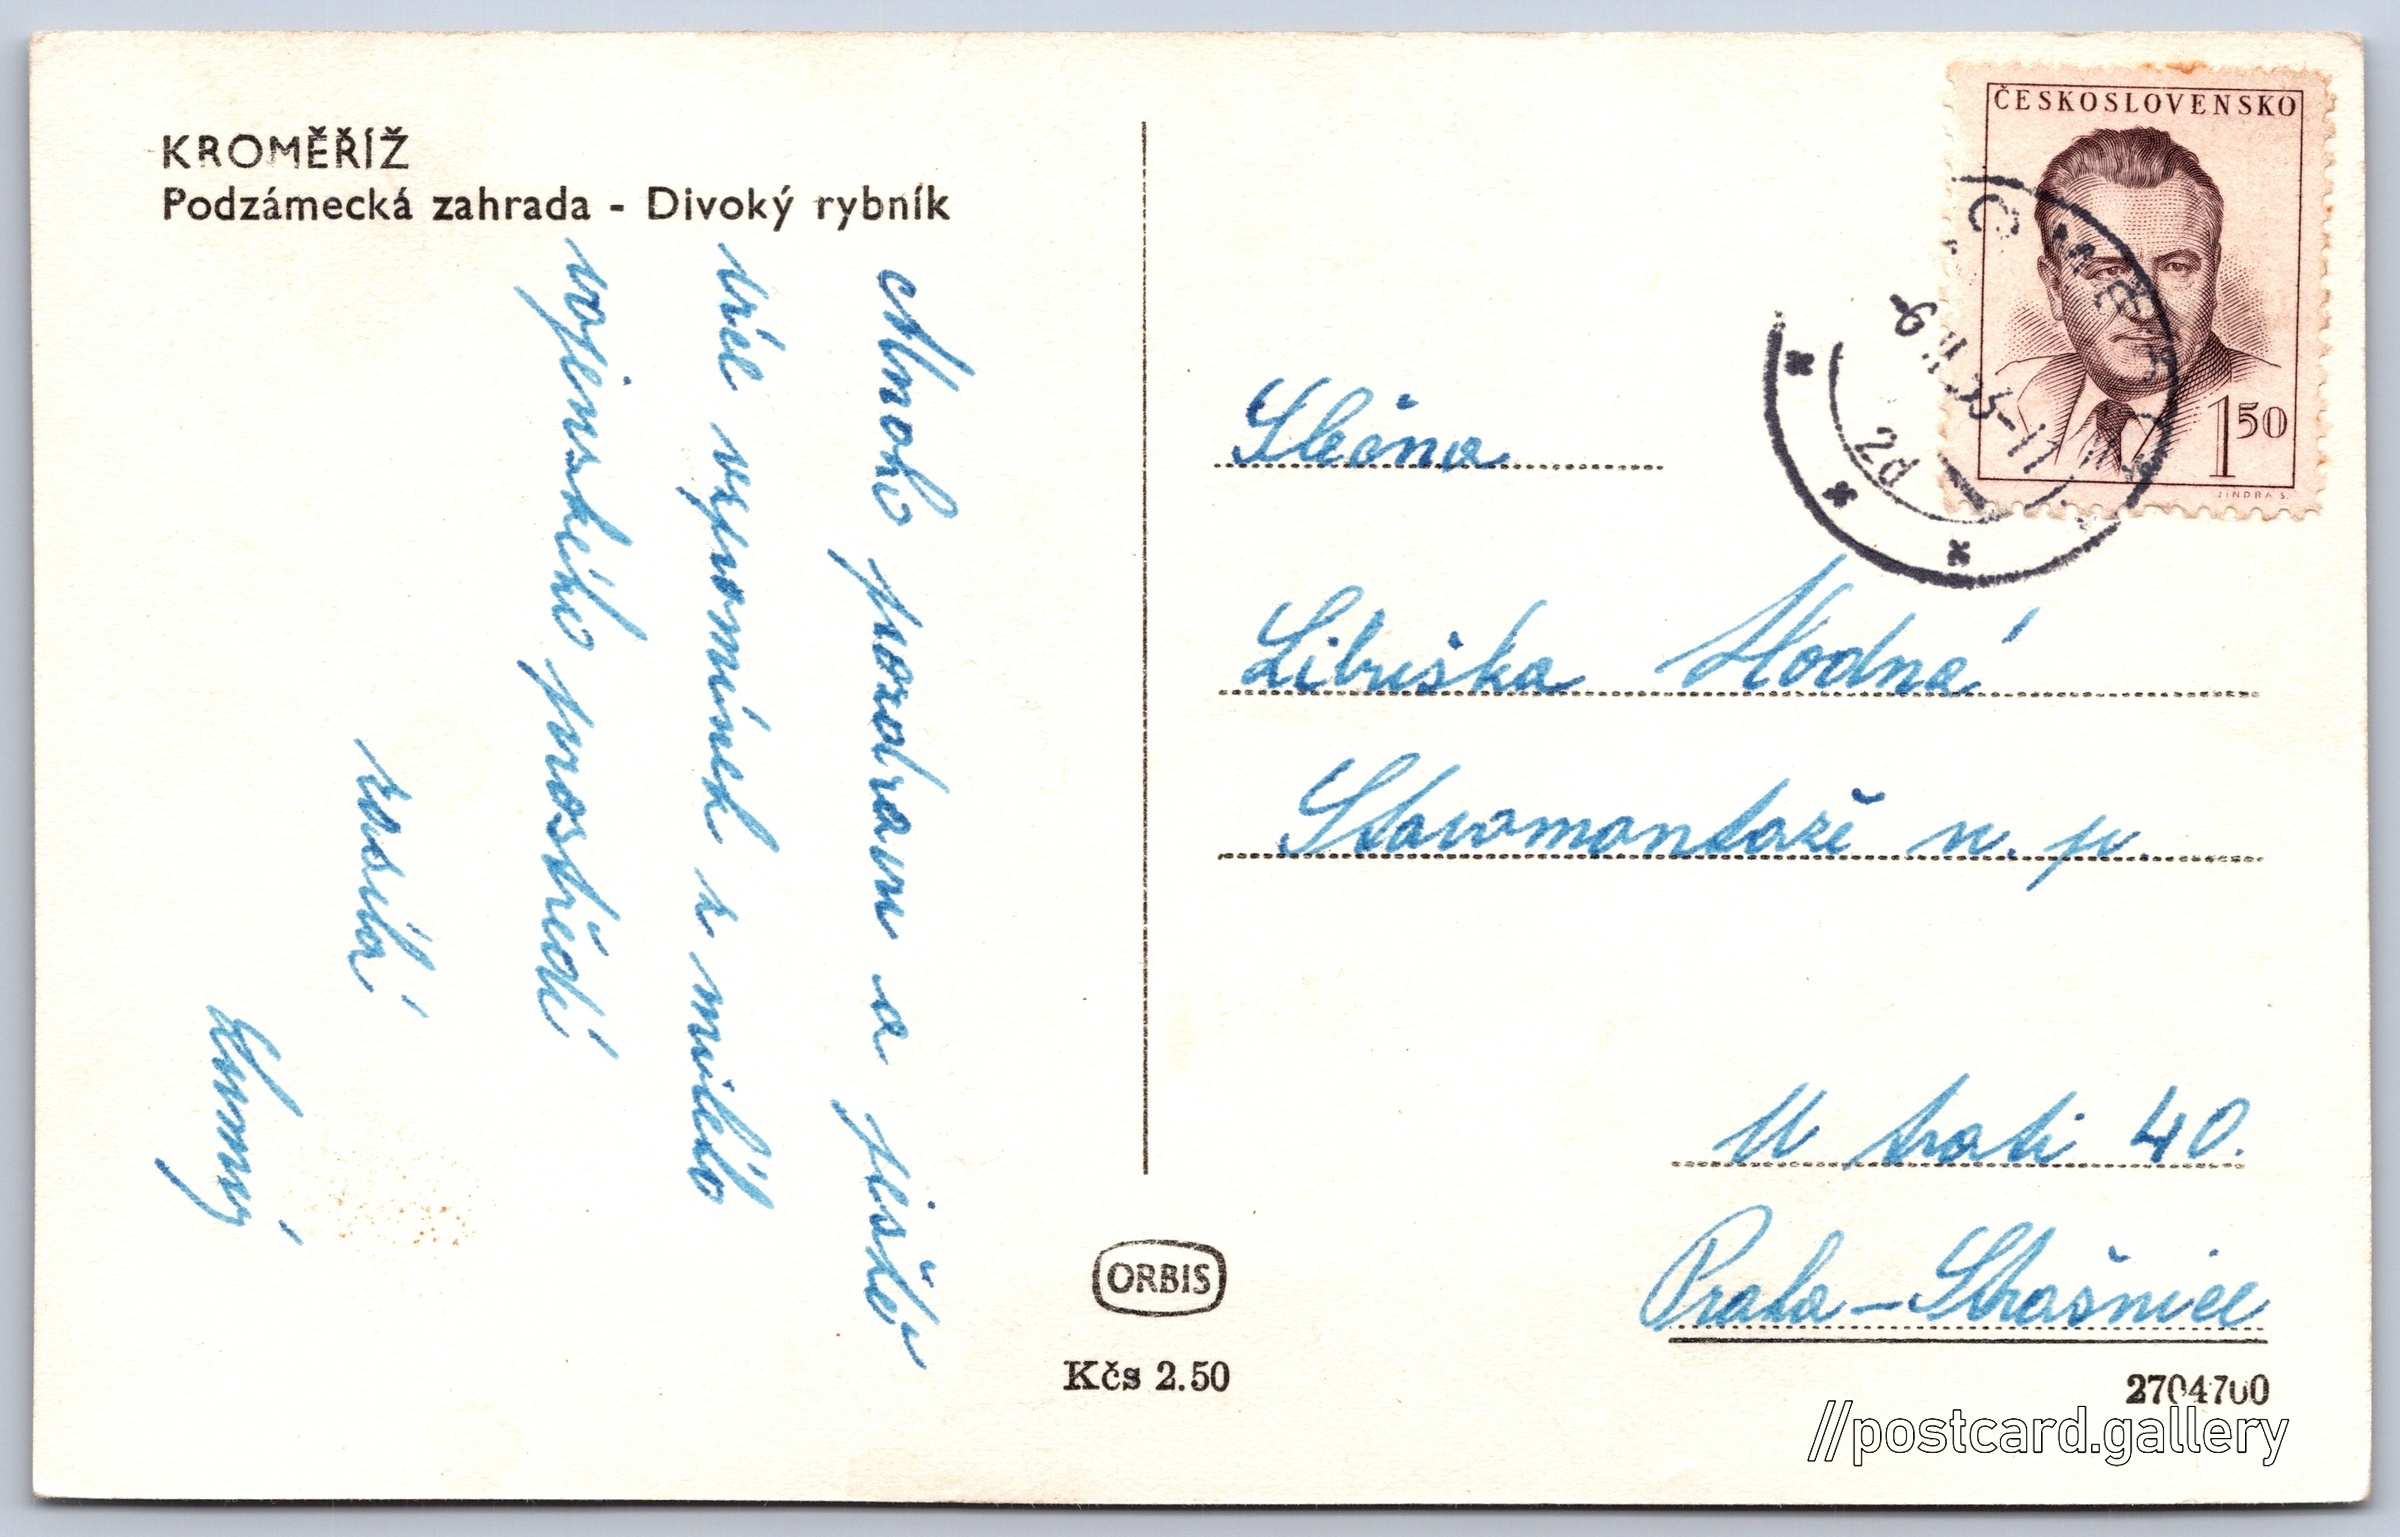 KROMĚŘÍŽ
Podzámecká zahrada - Divoký rybník
Mnoho pozdravu a ještě
více vzpomínek z milého
vojenského prostředí
zasílá
ČESKOSLOVENSKO
1 50
JINDRA S.
2d
Slečna
Libuška Hodná
Stavomontaže n. p.
U trati 40.
Praha - Strašnice
ORBIS
Kčs 2.50
2704700
//postcard.gallery